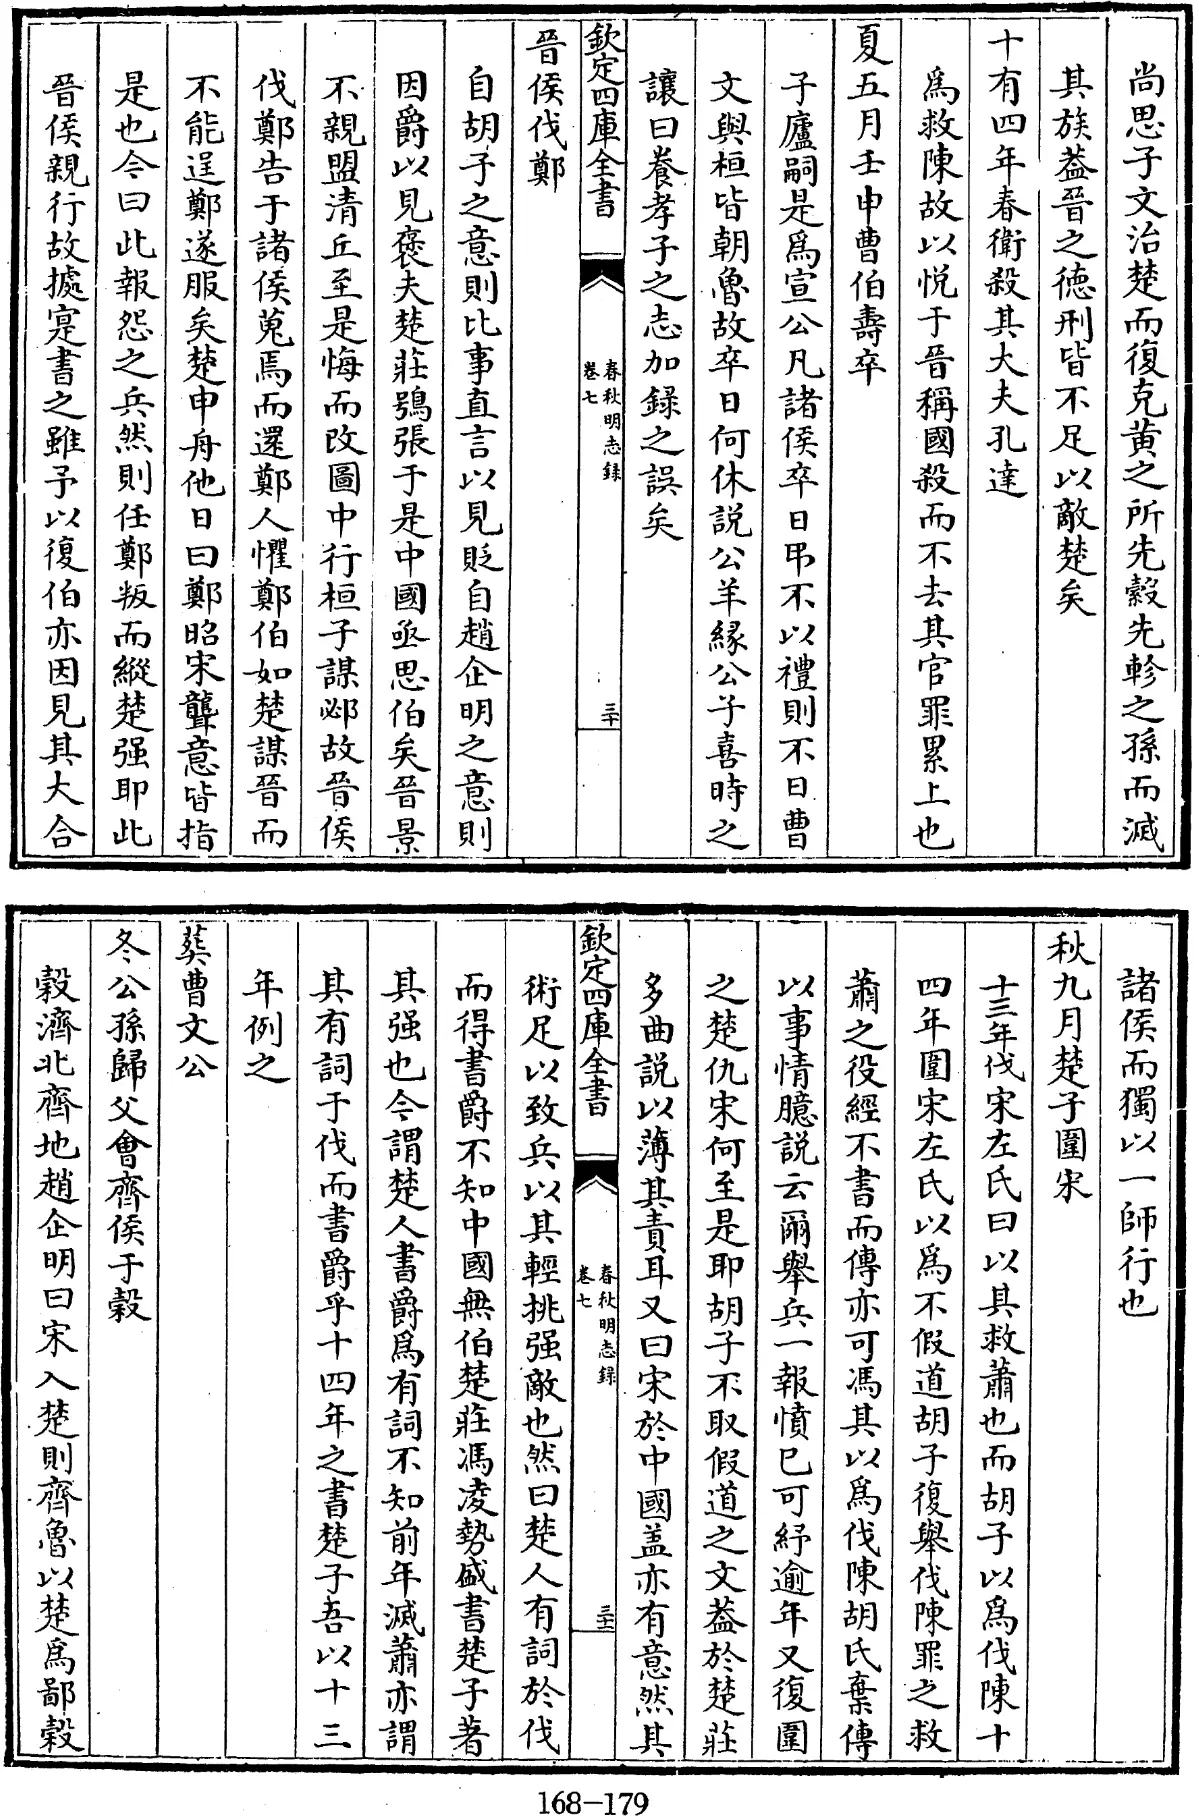 尚思子文治楚而復克黄之所先縠先軫之孫而滅
其族葢晉之德刑皆不足以敵楚矣
十有四年春衛殺其大夫孔達
爲救陳故以悦于晉稱國殺而不去其官罪累上也
夏五月壬申曹伯壽卒
子廬嗣是爲宣公凡諸侯卒日弔不以禮則不日曹
文與桓皆朝魯故卒日何休説公羊緣公子喜時之
讓曰養孝子之志加録之誤矣
欽定四庫全書
春秋明志録
卷七
三十
晉侯伐鄭
自胡子之意則比事直言以見貶自趙企明之意則
因爵以見褒夫楚莊鴞張于是中國亟思伯矣晉景
不親盟清丘至是悔而改圖中行桓子謀邲故晉侯
伐鄭告于諸侯蒐焉而還鄭人懼鄭伯如楚謀晉而
不能逞鄭遂服矣楚申舟他日曰鄭昭宋聾意皆指
是也今曰此報怨之兵然則任鄭叛而縱楚强耶此
晉侯親行故據寔書之雖予以復伯亦因見其大合
諸侯而獨以一師行也
秋九月楚子圍宋
十三年伐宋左氏曰以其救蕭也而胡子以爲伐陳十
四年圍宋左氏以爲不假道胡子復舉伐陳罪之救
蕭之役經不書而傳亦可馮其以爲伐陳胡氏棄傳
以事情臆説云爾舉兵一報憤已可紓逾年又復圍
之楚仇宋何至是耶胡子不取假道之文葢於楚莊
多曲説以薄其責耳又曰宋於中國盖亦有意然其
欽定四庫全書
春秋明志録
卷七
三十一
術足以致兵以其輕挑强敵也然曰楚人有詞於伐
而得書爵不知中國無伯楚莊馮凌勢盛書楚子著
其强也今謂楚人書爵爲有詞不知前年滅蕭亦謂
其有詞于伐而書爵乎十四年之書楚子吾以十三
年例之
葬曹文公
冬公孫歸父會齊侯于穀
穀濟北齊地趙企明曰宋入楚則齊魯以楚爲鄙穀
168-179